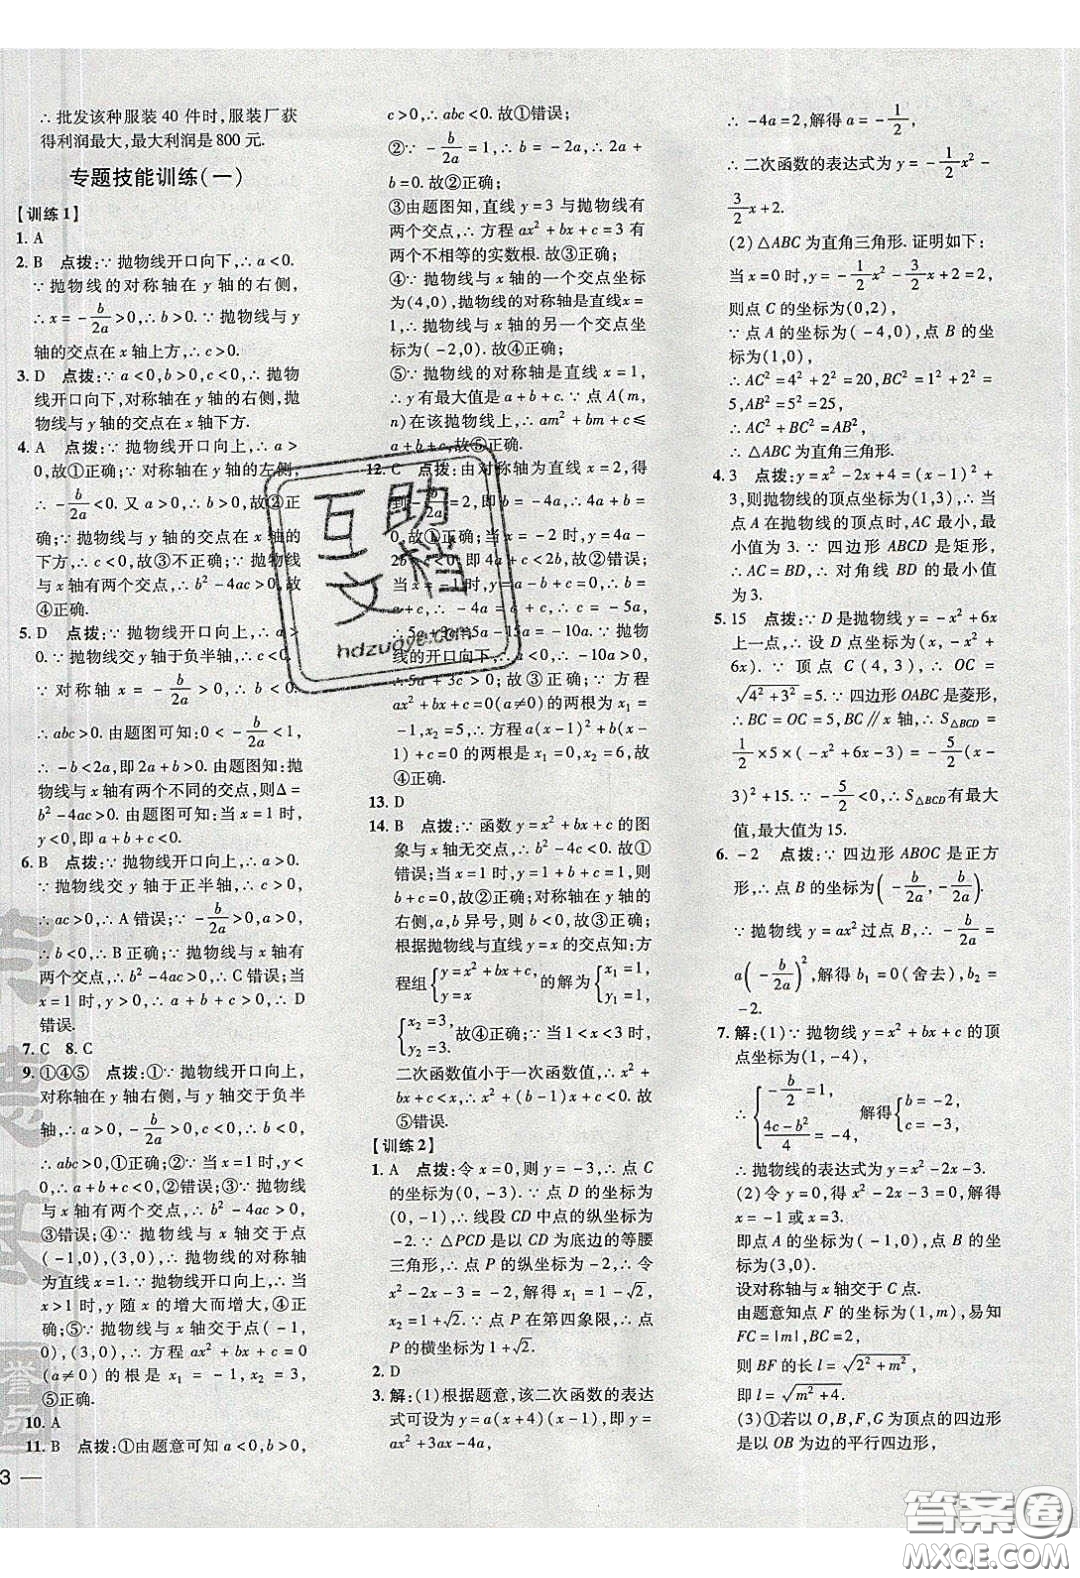 ∴ 批发该种服装 40 件时,服装厂获
得利润最大,最大利润是 800 元.
专题技能训练(一)
【训练 1】
1. A
2. B 点拨:∵ 抛物线开口向下,∴ a<0.
∵ 抛物线的对称轴在 y 轴的右侧,
∴ x = -b/2a >0,∴ b>0. ∵ 抛物线与 y
轴的交点在 x 轴上方,∴ c>0.
3. D 点拨:∵ a<0,b>0,c<0,∴ 抛物
线开口向下,对称轴在 y 轴的右侧,抛
物线与 y 轴的交点在 x 轴下方.
4. A 点拨:∵ 抛物线开口向上,∴ a>
0,故①正确;∵ 对称轴在 y 轴的左侧,
∴ -b/2a <0. 又 a>0,∴ b>0,故②正
确;∵ 抛物线与 y 轴的交点在 x 轴的
下方,∴ c<0,故③不正确;∵ 抛物线
与 x 轴有两个交点,∴ b²-4ac>0,故
④正确.
5. D 点拨:∵ 抛物线开口向上,∴ a>
0. ∵ 抛物线交 y 轴于负半轴,∴ c<0.
∵ 对称轴 x = -b/2a >0,∴ b<0.
∴ abc>0. 由题图可知:0< -b/2a <1,
∴ -b<2a,即 2a+b>0. 由题图知:抛
物线与 x 轴有两个不同的交点,则Δ=
b²-4ac>0;由题图可知:当 x=1 时,
y<0,即 a+b+c<0.
6. B 点拨:∵ 抛物线开口向上,∴ a>
0. ∵ 抛物线交 y 轴于正半轴,∴ c>0,
∴ ac>0,∴ A 错误;∵ -b/2a >0,a>0,
∴ b<0,∴ B 正确;∵ 抛物线与 x 轴有
两个交点,∴ b²-4ac>0,∴ C 错误;当
x=1 时,y>0,∴ a+b+c>0,∴ D
错误.
7. C 8. C
9. ①④⑤ 点拨:①∵ 抛物线开口向上,
对称轴在 y 轴右侧,与 y 轴交于负半
轴,∴ a>0, -b/2a >0,c<0,∴ b<0,
∴ abc>0,①正确;②错误;③∵ 抛物
线与 x 轴有两个交点,∴ b²-4ac>0,
③错误;④∵ 抛物线与 x 轴交于点
(-1,0),(3,0),∴ 抛物线的对称轴
为直线 x=1. ∵ 抛物线开口向上,∴ 当
x>1 时,y 随 x 的增大而增大,④正
确;⑤∵ 抛物线与 x 轴交于点(-1,
0),(3,0),∴ 方程 ax²+bx+c=0
(a≠0) 的根是 x₁ = -1,x₂ = 3,
⑤正确.
10. A
11. B 点拨:①由题意可知 a<0,b>0,
3
c>0,∴ abc<0. 故①错误;
②∵ -b/2a = 1,∴ b = -2a,∴ 2a +
b=0. 故②正确;
③由题图知,直线 y=3 与抛物线有
两个交点,∴ 方程 ax²+bx+c=3 有
两个不相等的实数根. 故③正确;
④∵ 抛物线与 x 轴的一个交点坐标
为(4,0),抛物线的对称轴是直线x=
1,∴ 抛物线与 x 轴的另一个交点坐
标为(-2,0). 故④正确;
⑤∵ 抛物线的对称轴是直线 x=1,
∴ y 有最大值是 a+b+c. ∵ 点 A(m,
n)在该抛物线上,∴ am²+bm+c≤
a+b+c,故⑤正确.
12. C 点拨:由对称轴为直线 x=2,得
到 -b/2a =2,即 b=-4a,∴ 4a+b=
0,故①正确;当 x=-2 时,y=4a-
2b+c<0,即 4a+c<2b,故②错误;
当 x=-1 时,y=a-b+c=0,
b=-4a,∴ c=-5a,
∴ 5a+3c=5a-15a=-10a. ∵ 抛物
线的开口向下,∴ a<0,∴ -10a>0,
∴ 5a+3c>0;故③正确;∵ 方程
ax²+bx+c=0(a≠0)的两根为 x₁=
-1,x₂=5,∴ 方程 a(x-1)²+b(x-
1)+c=0 的两根是 x₁=0,x₂=6,故
④正确.
13. D
14. B 点拨:∵ 函数 y=x²+bx+c 的图
象与 x 轴无交点,∴ b²-4c<0;故①
错误;当 x=1 时,y=1+b+c=1,故
②错误;由题图可得,对称轴在 y 轴的
右侧,a,b 异号,b<0,故③正确;
根据抛物线与直线 y=x 的交点知:方
程组 {y=x²+bx+c y=x 的解为 {x₁=1, y₁=1,
{x₂=3, y₂=3, 故④正确;∵ 当 1<x<3 时,
二次函数值小于一次函数值,∴ x²+
bx+c<x,∴ x²+(b-1)x+c<0. 故
⑤错误.
【训练 2】
1. A 点拨:令 x=0,则 y=-3,∴ 点 C
的坐标为(0,-3). ∵ 点 D 的坐标为
(0,-1),∴ 线段 CD 中点的纵坐标为
-2. ∵ △PCD 是以 CD 为底边的等腰
三角形,∴ 点 P 的纵坐标为-2,∴ 令
x²-2x-3=-2,解得 x₁=1-√2,
x₂=1+√2. ∵ 点 P 在第四象限,∴ 点
P 的横坐标为 1+√2.
2. D
3. 解:(1)根据题意,该二次函数的表达
式可设为 y=a(x+4)(x-1),即 y=
ax²+3ax-4a,
∴ -4a=2,解得 a=-1/2,
∴ 二次函数的表达式为 y=-1/2x²-
3/2x+2.
(2) △ABC 为直角三角形. 证明如下:
当 x=0 时,y=-1/2x²-3/2x+2=2,
则点 C 的坐标为(0,2),
∵ 点 A 的坐标为(-4,0),点 B 的坐
标为(1,0),
∴ AC²=4²+2²=20,BC²=1²+2²=
5,AB²=5²=25,
∴ AC²+BC²=AB²,
∴ △ABC 为直角三角形.
4. 3 点拨:y=x²-2x+4=(x-1)²+
3,则抛物线的顶点坐标为(1,3),∴ 当
点 A 在抛物线的顶点时,AC 最小,最
小值为 3. ∵ 四边形 ABCD 是矩形,
∴ AC=BD,∴ 对角线 BD 的最小值
为 3.
5. 15 点拨:∵ D 是抛物线 y=-x²+6x
上一点,∴ 设 D 点坐标为(x,-x²+
6x). ∵ 顶点 C(4,3),∴ OC =
√(4²+3²)=5. ∵ 四边形 OABC 是菱形,
∴ BC=OC=5,BC∥x 轴,∴ S△BCD=
1/2×5×(-x²+6x-3)=-5/2(x-
3)²+15. ∵ -5/2<0,∴ S△BCD有最大
值,最大值为 15.
6. -2 点拨:∵ 四边形 ABOC 是正方
形,∴ 点 B 的坐标为(-b/2a, -b/2a).
∵ 抛物线 y=ax² 过点 B,∴ -b/2a =
a(-b/2a)²,解得 b₁=0(舍去),b₂=
-2.
7. 解:(1)∵ 抛物线 y=x²+bx+c 的顶
点坐标为(1,-4),
∴ {-b/2=1, (4c-b²)/4=-4, 解得{b=-2, c=-3,
∴ 抛物线的表达式为 y=x²-2x-3.
(2)令 y=0,则 x²-2x-3=0,解得
x=-1 或 x=3,
即点 A 的坐标为(-1,0),点 B 的坐标
为(3,0).
设对称轴与 x 轴交于 C 点.
由题意知点 F 的坐标为(1,m),易知
FC=|m|,BC=2,
则 BF 的长 l=√(2²+m²),
即 l=√(m²+4).
(3)①若以 O,B,F,G 为顶点的四边形
是以 OB 为边的平行四边形,
互助
文档
hdzuoye.com
誉
答案圈
MXQE.COM